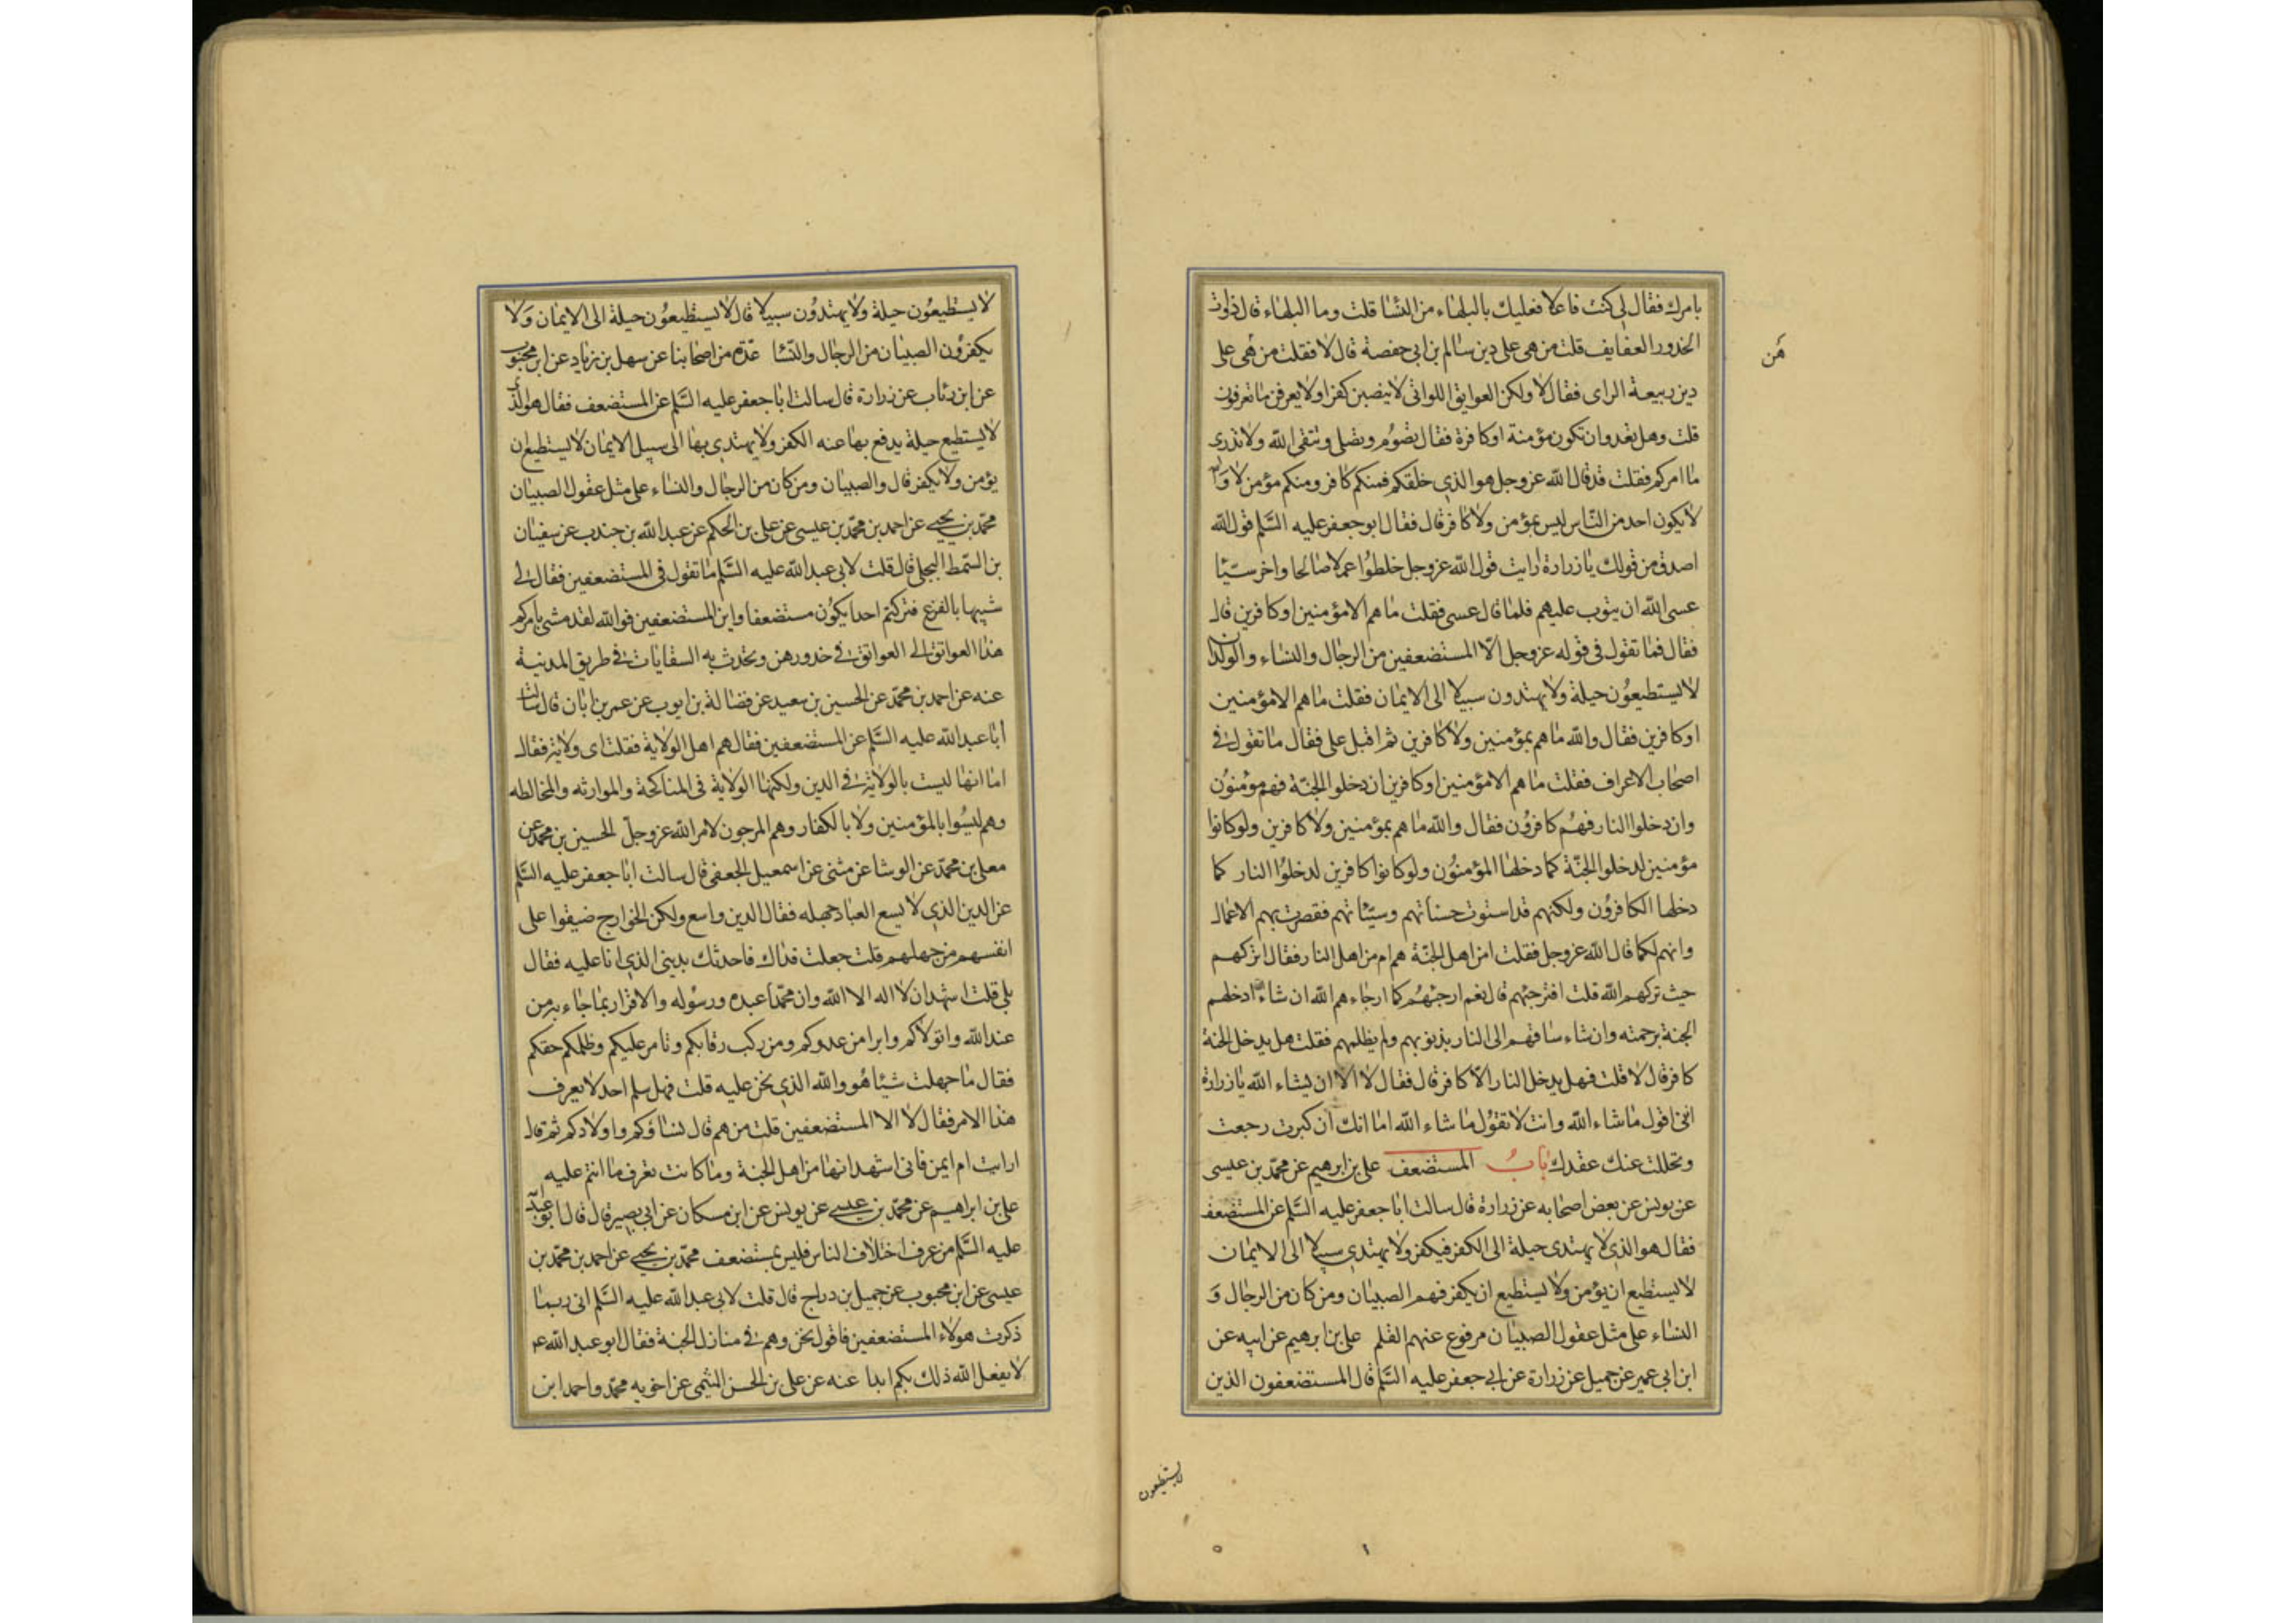 بامرك فقال لي كنت فاعلا فعليك بالبلهاء من النسا قلت وما البلهاء قال ذوات
الخدور العفايف قلت من هي على دين سالم بن ابي حفصة قال لا فقلت من هي على
هن
دين ربيعة الراى فقال لا ولكن العوايق اللواتى لا ينصبن كفرا ولا يعرفن ما تعرفون
قلت وهل تعدوان تكون مؤمنة او كافرة فقال تصوم وتصلى وتتقى الله ولا تدرى
ما امركم فقلت قد قال الله عز وجل هو الذي خلقكم فمنكم كافر ومنكم مؤمن لا والله
لا يكون احد من الناس ليس بمؤمن ولا كافر قال فقال ابو جعفر عليه السلم قول الله
اصدق من قولك يا زرارة ارايت قول الله عز وجل خلطوا عملا صالحا واخر سيئا
عسى الله ان يتوب عليهم فلما قال عسى فقلت ما هم الا مؤمنين او كافرين قال
فقال فما تقول في قوله عز وجل الا المستضعفين من الرجال والنساء والولدان
لا يستطيعون حيلة ولا يهتدون سبيلا الى الايمان فقلت ما هم الا مؤمنين
او كافرين فقال والله ما هم بمؤمنين ولا كافرين ثم اقبل على فقال ما تقول في
اصحاب الاعراف فقلت ما هم الا مؤمنين او كافرين ان دخلوا الجنة فهم مؤمنون
وان دخلوا النار فهم كافرون فقال والله ما هم بمؤمنين ولا كافرين ولو كانوا
مؤمنين لدخلوا الجنة كما دخلها المؤمنون ولو كانوا كافرين لدخلوا النار كما
دخلها الكافرون ولكنهم قد استوت حسناتهم وسيئاتهم فقصرت بهم الاعمال
وانهم لكما قال الله عز وجل فقلت امن اهل الجنة هم ام من اهل النار فقال اتركهم
حيث تركهم الله قلت افترجئهم قال نعم ارجئهم كما ارجاءهم الله ان شاء ادخلهم
الجنة برحمته وان شاء ساقهم الى النار بذنوبهم ولم يظلمهم فقلت هل يدخل الجنة
كافر قال لا قلت فهل يدخل النار الا كافر قال فقال لا الا ان يشاء الله يا زرارة
انى اقول ما شاء الله وانت لا تقول ما شاء الله اما انك ان كبرت رجعت
وتحللت عنك عقدك باب المستضعف على بن ابرهيم عن محمد بن عيسى
عن يونس عن بعض اصحابه عن زرارة قال سالت ابا جعفر عليه السلم عن المستضعف
فقال هو الذي لا يهتدى حيلة الى الكفر فيكفر ولا يهتدي سبيلا الى الايمان
لا يستطيع ان يؤمن ولا يستطيع ان يكفر فهم الصبيان ومن كان من الرجال و
النساء على مثل عقول الصبيان مرفوع عنهم القلم على بن ابرهيم عن ابيه عن
ابن ابي عمير عن جميل عن زرارة عن ابي جعفر عليه السلم قال المستضعفون الذين
لا يستطيعون
لا يستطيعون حيلة ولا يهتدون سبيلا قال لا يستطيعون حيلة الى الايمان ولا
يكفرون الصبيان من الرجال والنسا عدة من اصحابنا عن سهل بن زياد عن ابن محبوب
عن ابن رئاب عن زرارة قال سالت ابا جعفر عليه السلم عن المستضعف فقال هو الذي
لا يستطيع حيلة يدفع بها عنه الكفر ولا يهتدي بها الى سبيل الايمان لا يستطيع ان
يؤمن ولا يكفر قال والصبيان ومن كان من الرجال والنساء على مثل عقول الصبيان
محمد بن يحيى عن احمد بن محمد بن عيسى عن على بن الحكم عن عبد الله بن جندب عن سفيان
بن السمط البجلي قال قلت لابى عبد الله عليه السلم ما تقول في المستضعفين فقال لي
شبيها بالفزع فتركتم احدا يكون مستضعفا واين المستضعفين فوالله لقد مشى بامركم
هذا العواتق الى العواتق في خدورهن وتحدث به السقايات في طريق المدينة
عنه عن احمد بن محمد عن الحسين بن سعيد عن فضالة بن ايوب عن عمر بن ابان قال سالت
أبا عبد الله عليه السلم عن المستضعفين فقال هم اهل الولاية فقلت اى ولاية فقال
اما انها ليست بالولاية في الدين ولكنها الولاية فى المناكحة والموارثه والمخالطه
وهم ليسوا بالمؤمنين ولا بالكفار وهم المرجون لامر الله عز وجل الحسين بن محمد عن
معلى بن محمد عن الوشا عن مثنى عن اسمعيل الجعفي قال سالت ابا جعفر عليه السلم
عن الدين الذي لا يسع العباد جهله فقال الدين واسع ولكن الخوارج ضيقوا على
انفسهم من جهلهم قلت جعلت فداك فاحدثك بديني الذي انا عليه فقال
بلى قلت اشهد ان لا اله الا الله وان محمدا عبده ورسوله والاقرار بما جاء به من
عند الله واتولاكم وابرا من عدوكم ومن ركب رقابكم وتامر عليكم وظلمكم حقكم
فقال ما جهلت شيئا هو والله الذي نحن عليه قلت فهل سلم احد لا يعرف
هذا الامر فقال لا الا المستضعفين قلت من هم قال نساؤكم واولادكم ثم قال
ارايت ام ايمن فانى اشهد انها من اهل الجنة وما كانت تعرف ما انتم عليه
على بن ابراهيم عن محمد بن عيسى عن يونس عن ابن مسكان عن ابي بصير قال قال ابو عبد الله
عليه السلم من عرف اختلاف الناس فليس بمستضعف محمد بن يحيى عن احمد بن محمد بن
عيسى عن ابن محبوب عن جميل بن دراج قال قلت لابى عبد الله عليه السلم انى ربما
ذكرت هولاء المستضعفين فاقول نحن وهم في منازل الجنة فقال ابو عبد الله ع
لا يفعل الله ذلك بكم ابدا عنه عن على بن الحسن التيمى عن اخويه محمد واحمد ابن